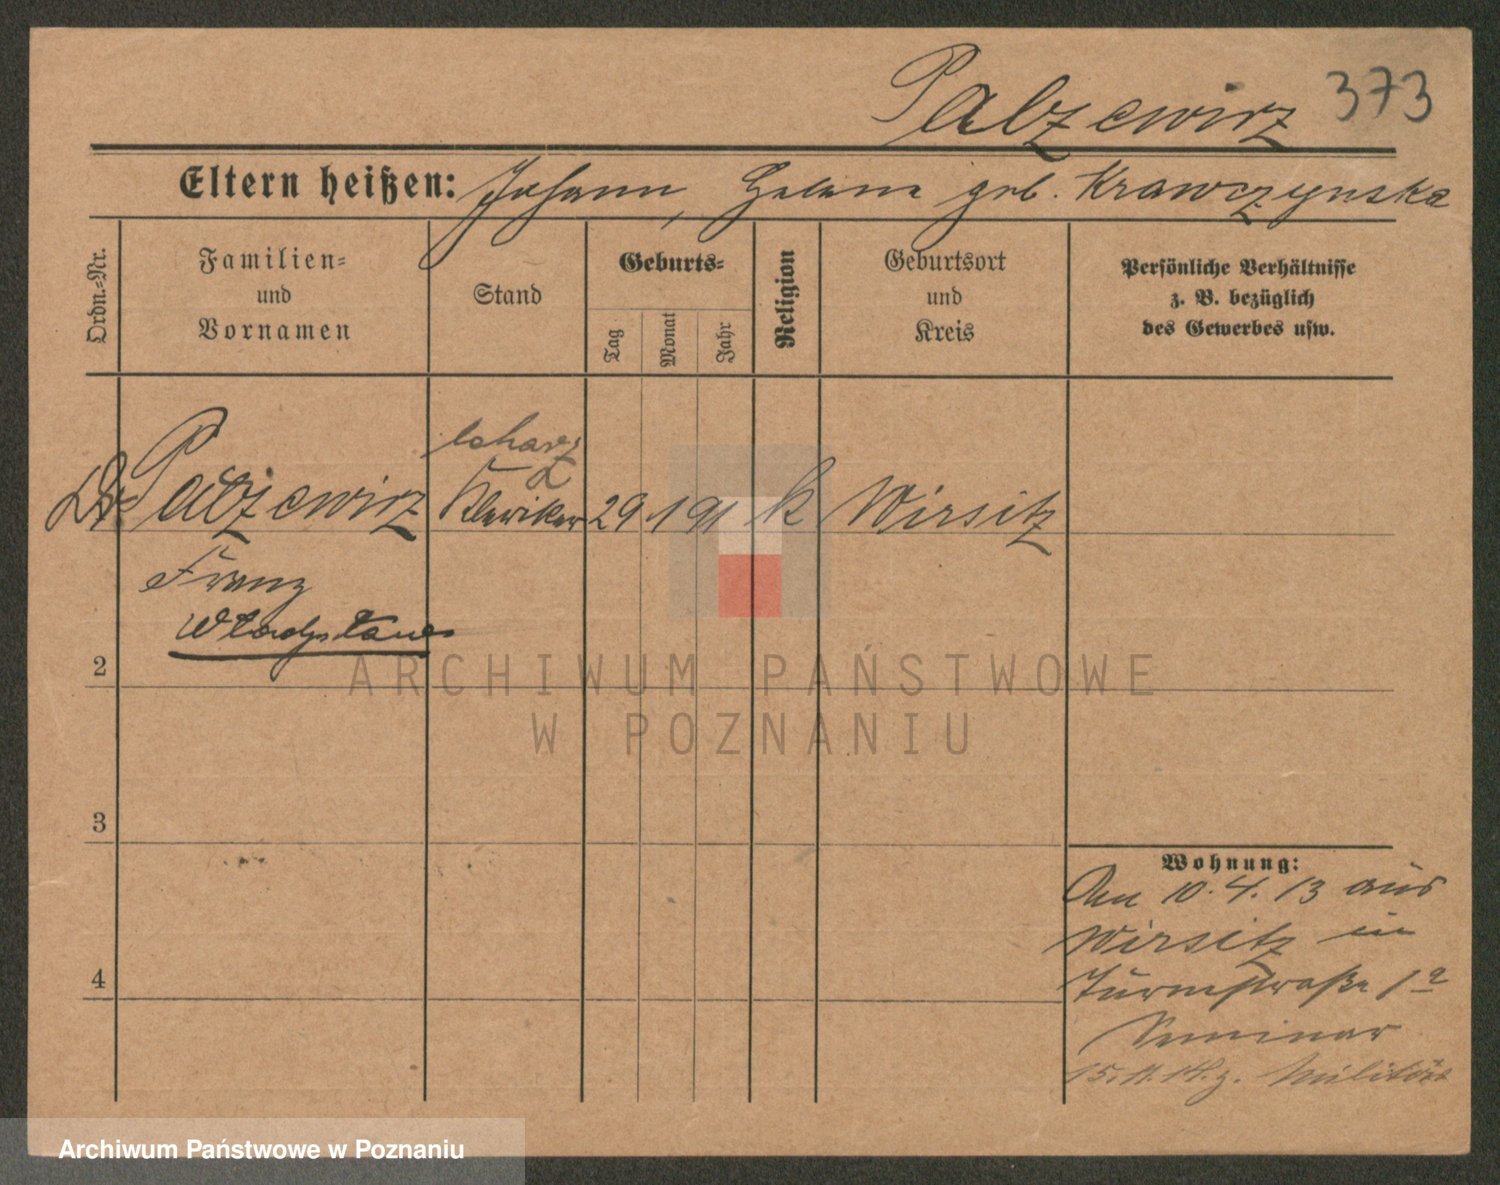 373
Palzewirz
Eltern heißen: Johann, Helene geb. Krawczynska
Ordn.-Nr.
Familien-
und
Vornamen
Stand
Geburts-
Tag
Monat
Jahr
Religion
Geburtsort
und
Kreis
Persönliche Verhältnisse
z. B. bezüglich
des Gewerbes usw.
Kleriker 29 1 91 k Wirsitz
Franz
Wladyslaus
2
3
4
Wohnung:
Am 10.4.13 aus
Wirsitz in
Turmstraße 1a
Seminar
15.11.14. z. Militär
ARCHIWUM PAŃSTWOWE
W POZNANIU
Archiwum Państwowe w Poznaniu